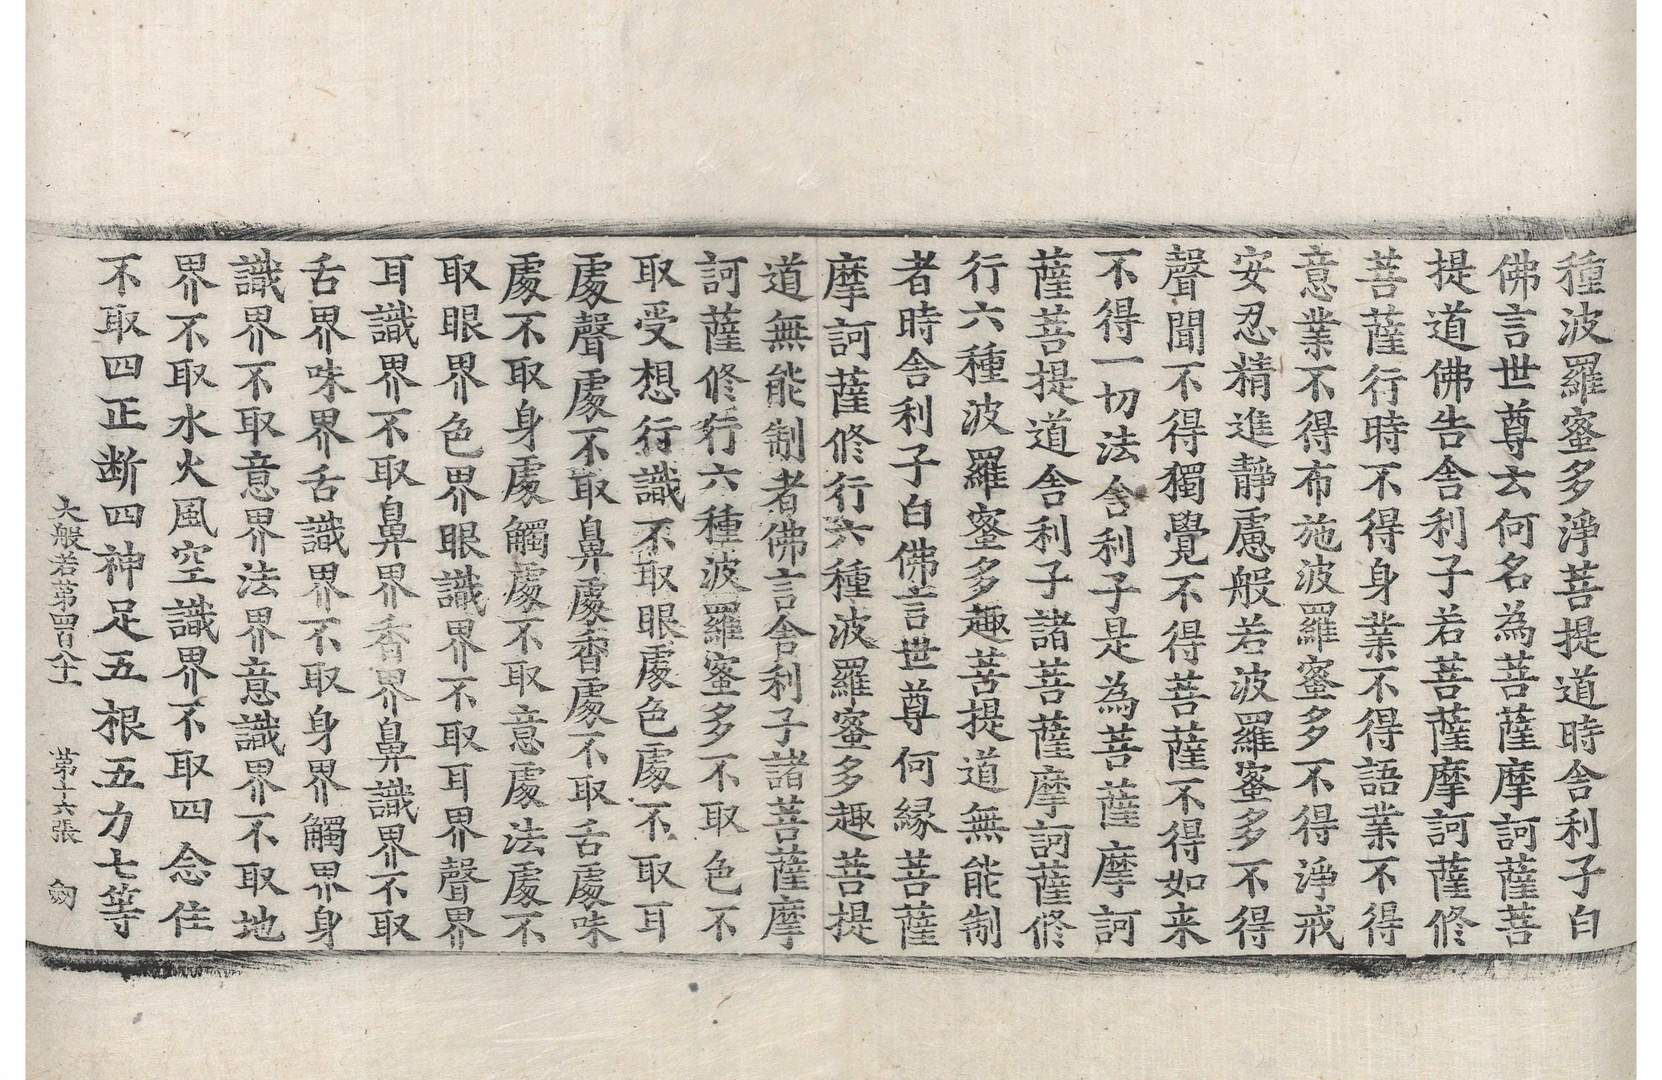 種波羅蜜多淨菩提道時舍利子白
佛言世尊云何名為菩薩摩訶薩菩
提道佛告舍利子若菩薩摩訶薩修
菩薩行時不得身業不得語業不得
意業不得布施波羅蜜多不得淨戒
安忍精進靜慮般若波羅蜜多不得
聲聞不得獨覺不得菩薩不得如来
不得一切法舍利子是為菩薩摩訶
薩菩提道舍利子諸菩薩摩訶薩修
行六種波羅蜜多趣菩提道無能制
者時舍利子白佛言世尊何縁菩薩
摩訶薩修行六種波羅蜜多趣菩提
道無能制者佛言舍利子諸菩薩摩
訶薩修行六種波羅蜜多不取色不
取受想行識不取眼處色處不取耳
處聲處不取鼻處香處不取舌處味
處不取身處觸處不取意處法處不
取眼界色界眼識界不取耳界聲界
耳識界不取鼻界香界鼻識界不取
舌界味界舌識界不取身界觸界身
識界不取意界法界意識界不取地
界不取水火風空識界不取四念住
不取四正断四神足五根五力七等
大般若第四百八十一 第十六張 劒